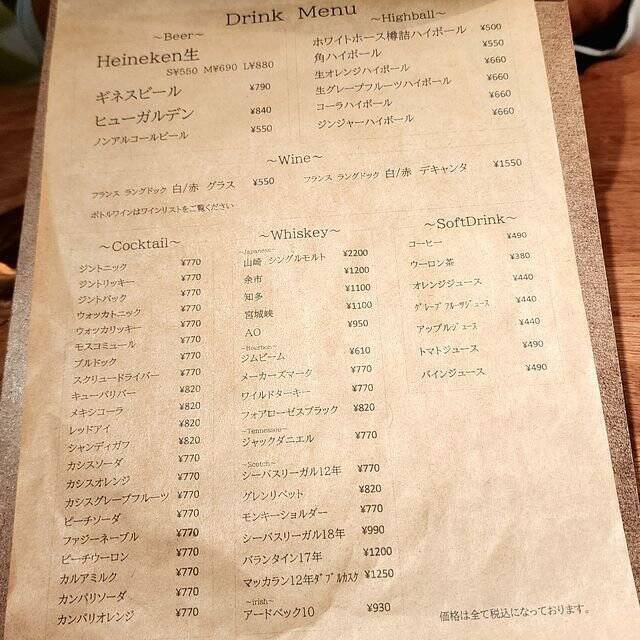 Drink Menu
～Beer～
Heineken生
S¥550 M¥690 L¥880
ギネスビール ¥790
ヒューガルデン ¥840
ノンアルコールビール ¥550
～Highball～
ホワイトホース樽詰ハイボール ¥500
角ハイボール ¥550
生オレンジハイボール ¥660
生グレープフルーツハイボール ¥660
コーラハイボール ¥660
ジンジャーハイボール ¥660
～Wine～
フランス ラングドック 白/赤 グラス ¥550
フランス ラングドック 白/赤 デキャンタ ¥1550
ボトルワインはワインリストをご覧ください
～Cocktail～
ジントニック ¥770
ジントリッキー ¥770
ジントバック ¥770
ウォッカトニック ¥770
ウォッカリッキー ¥770
モスコミュール ¥770
ブルドック ¥770
スクリュードライバー ¥770
キューバリバー ¥820
メキシコーラ ¥820
レッドアイ ¥820
シャンディガフ ¥820
カシスソーダ ¥770
カシスオレンジ ¥770
カシスグレープフルーツ ¥770
ピーチソーダ ¥770
ファジーネーブル ¥770
ピーチウーロン ¥770
カルアミルク ¥770
カンパリソーダ ¥770
カンパリオレンジ ¥770
～Whiskey～
～Japanese～
山崎 シングルモルト ¥2200
余市 ¥1200
知多 ¥1100
宮城峡 ¥1100
AO ¥950
～Bourbon～
ジムビーム ¥610
メーカーズマーク ¥770
ワイルドターキー ¥770
フォアローゼスブラック ¥820
～Tennessee～
ジャックダニエル ¥770
～Scotch～
シーバスリーガル12年 ¥770
グレンリベット ¥820
モンキーショルダー ¥770
シーバスリーガル18年 ¥990
バランタイン17年 ¥1200
マッカラン12年ﾀﾞﾌﾞﾙｶｽｸ ¥1250
～irish～
アードベック10 ¥930
～SoftDrink～
コーヒー ¥490
ウーロン茶 ¥380
オレンジジュース ¥440
ｸﾞﾚｰﾌﾟﾌﾙｰﾂｼﾞｭｰｽ ¥440
アップルジュース ¥440
トマトジュース ¥490
パインジュース ¥490
価格は全て税込になっております。